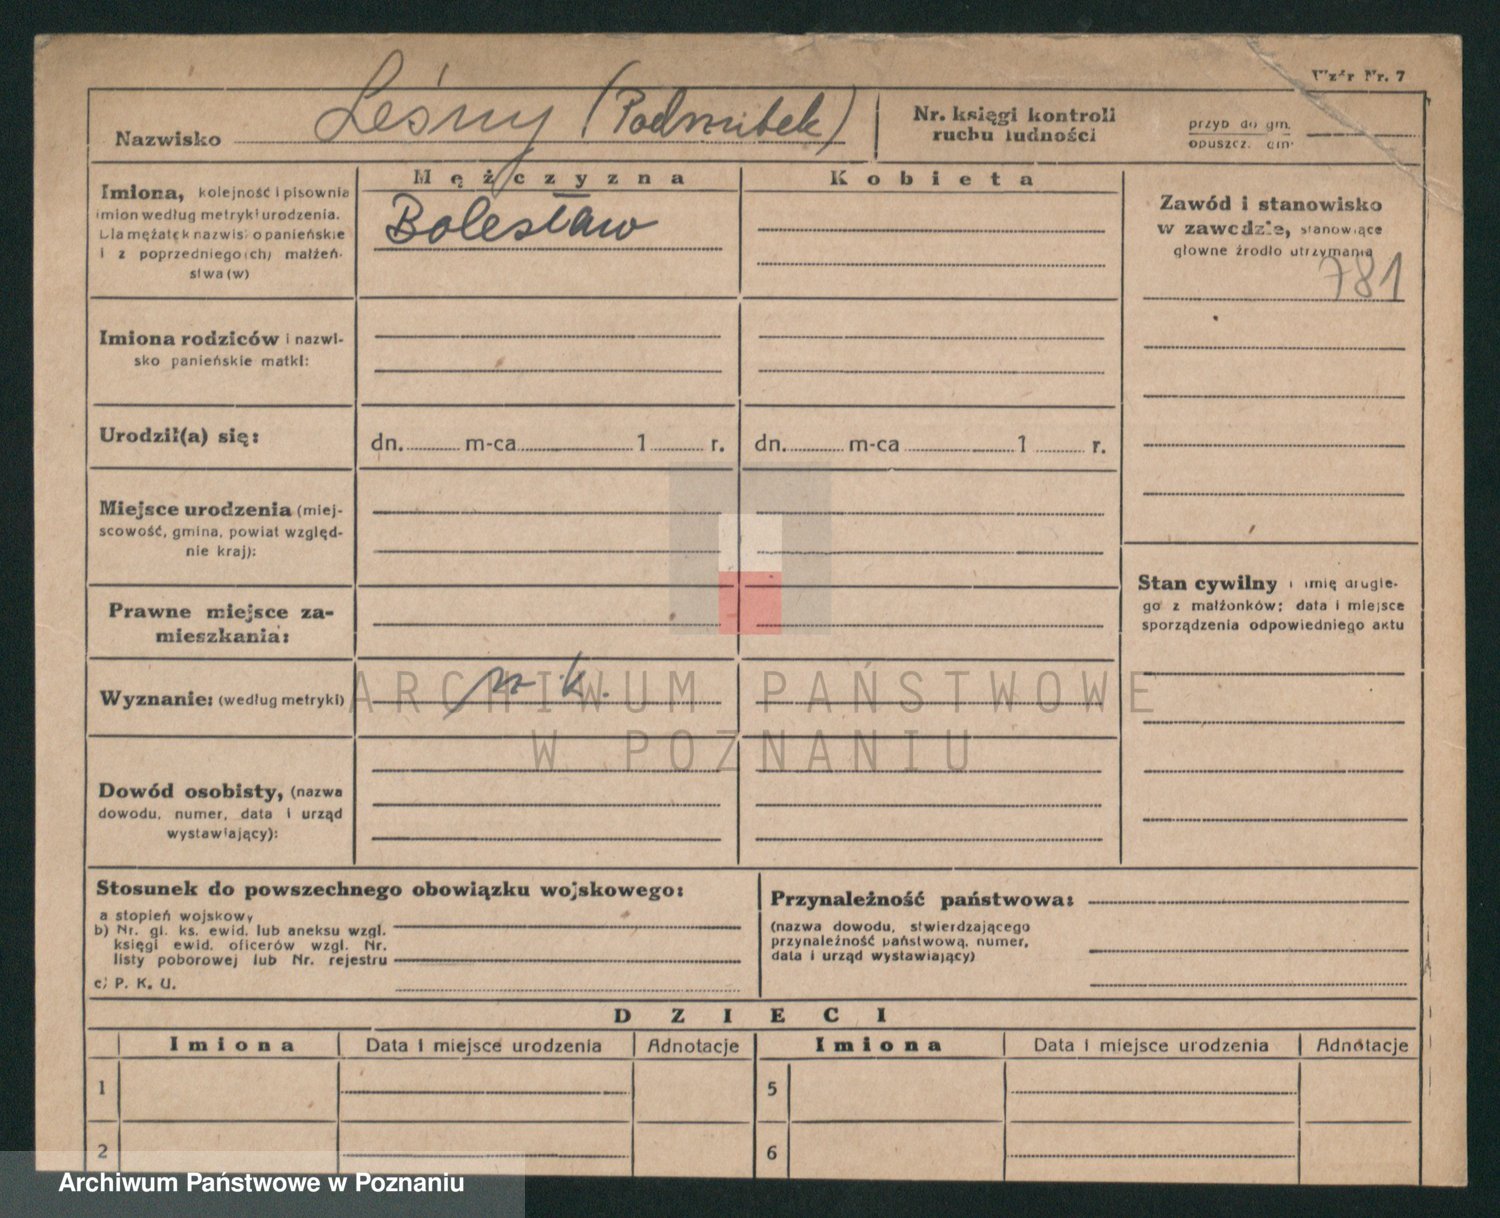 Wzór Nr. 7
Nazwisko Leśny (Podmitek)
Nr. księgi kontroli
ruchu ludności
przyb do gm.
opuszcz. gm.
Imiona, kolejność i pisownia
imion według metryki urodzenia.
Dla mężatek nazwisko panieńskie
i z poprzedniego(ch) małżeń-
stwa (w)
Mężczyzna
Bolesław
Kobieta
Zawód i stanowisko
w zawodzie, stanowiące
główne źródło utrzymania
781
Imiona rodziców i nazwi-
sko panieńskie matki:
Urodził(a) się:
dn. m-ca 1 r.
dn. m-ca 1 r.
Miejsce urodzenia (miej-
scowość, gmina, powiat względ-
nie kraj):
Stan cywilny i imię drugie-
go z małżonków; data i miejsce
sporządzenia odpowiedniego aktu
Prawne miejsce za-
mieszkania:
Wyznanie: (według metryki)
k.
ARCHIWUM PAŃSTWOWE
W POZNANIU
Dowód osobisty, (nazwa
dowodu, numer, data i urząd
wystawiający):
Stosunek do powszechnego obowiązku wojskowego:
a stopień wojskowy
b) Nr. gl. ks. ewid. lub aneksu wzgl.
księgi ewid. oficerów wzgl. Nr.
listy poborowej lub Nr. rejestru
c) P. K. U.
Przynależność państwowa:
(nazwa dowodu, stwierdzającego
przynależność państwową, numer,
data i urząd wystawiający)
DZIECI
Imiona Data i miejsce urodzenia Adnotacje Imiona Data i miejsce urodzenia Adnotacje
1 5
2 6
Archiwum Państwowe w Poznaniu